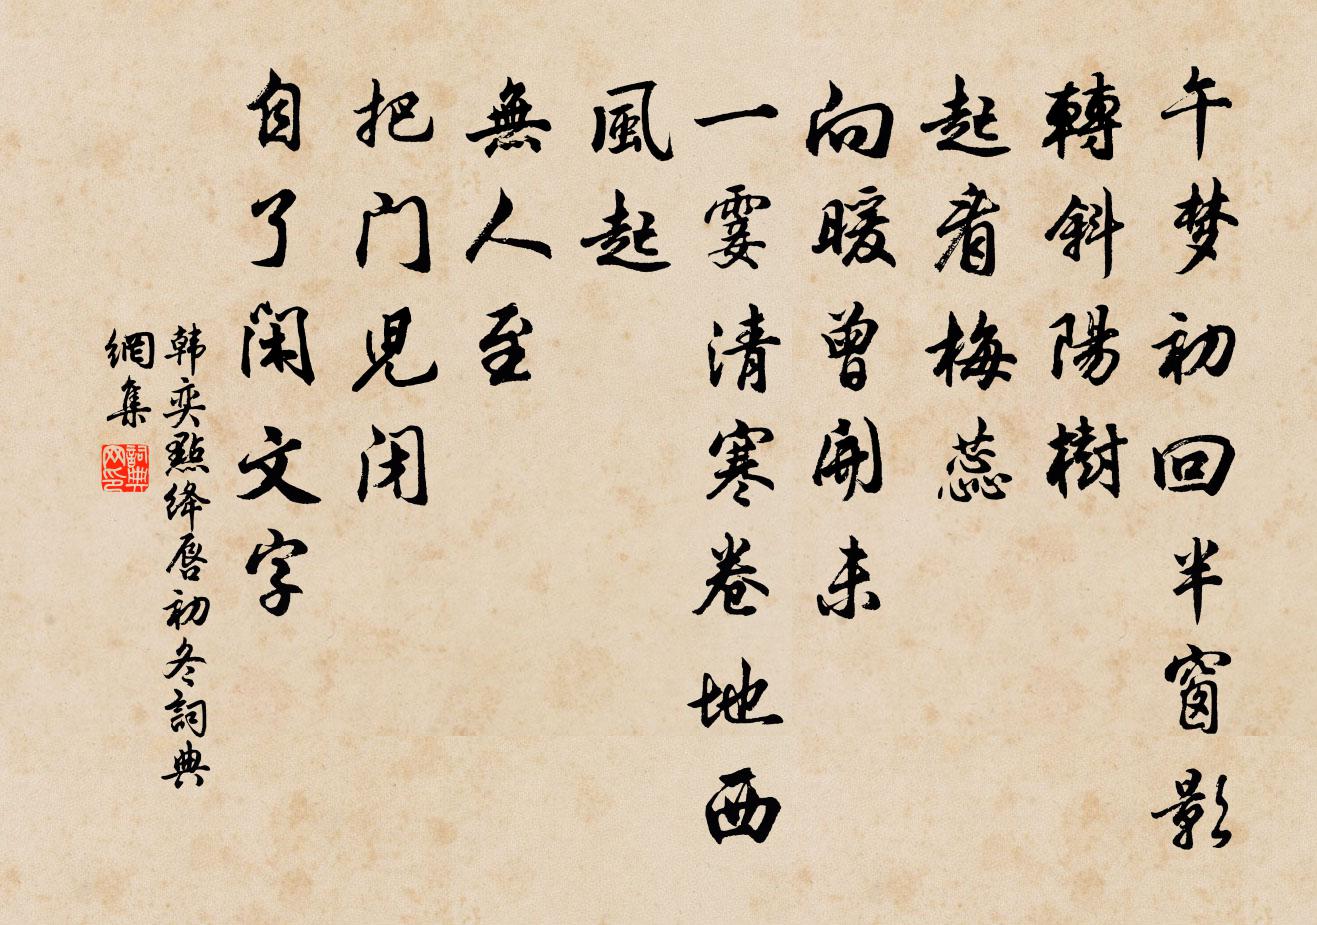 午梦初回半窗影
轉斜陽樹
起看梅蕊
向暖曾開未
一霎清寒卷地西
風起
無人至
把门児闭
自了闲文字
韩奕點绛唇初冬詞典
網集
詞典网印